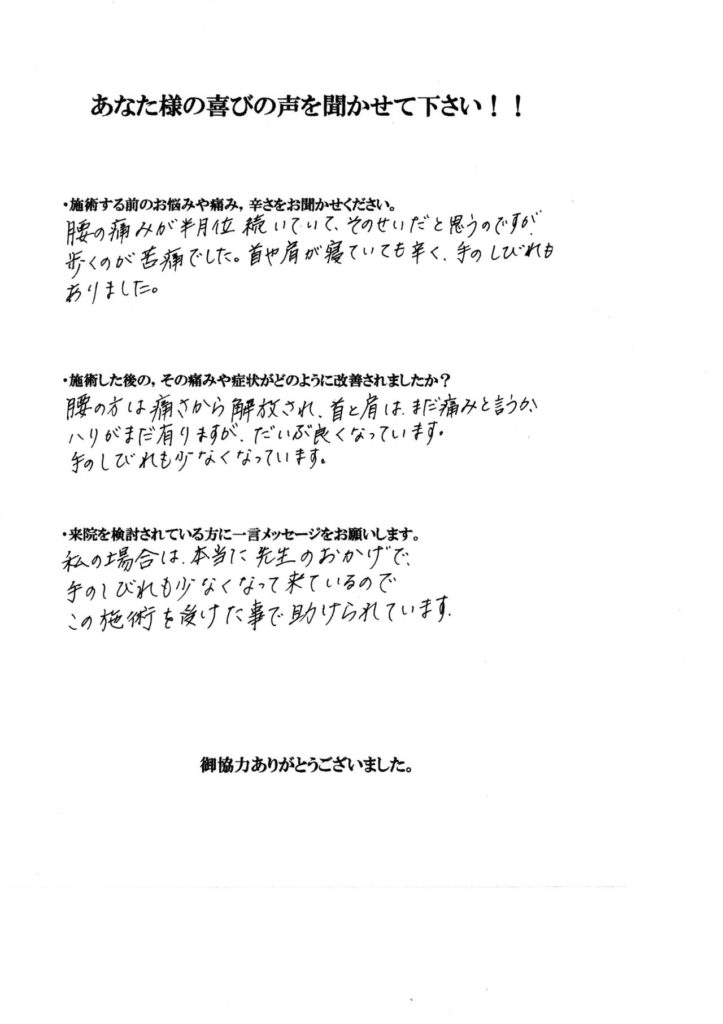 あなた様の喜びの声を聞かせて下さい！！
・施術する前のお悩みや痛み，辛さをお聞かせください。
腰の痛みが半月位続いていて、そのせいだと思うのですが、
歩くのが苦痛でした。首や肩が寝ていても辛く、手のしびれも
ありました。
・施術した後の，その痛みや症状がどのように改善されましたか？
腰の方は痛さから解放され、首と肩は、まだ痛みと言うか、
ハリがまだ有りますが、だいぶ良くなっています。
手のしびれも少なくなっています。
・来院を検討されている方に一言メッセージをお願いします。
私の場合は、本当に先生のおかげで、
手のしびれも少なくなって来ているので
この施術を受けた事で助けられています。
御協力ありがとうございました。